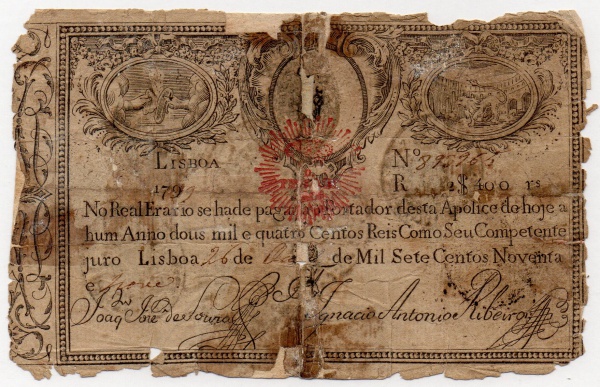 LISBOA
Nº
1799
R 2$400 rs
No Real Erario se hade pagar ao Portador desta Apolice de hoje a
hum Anno dous mil e quatro Centos Reis Como Seu Competente
juro Lisboa 26 de de Mil Sete Centos Noventa
e
Joaq Joze de Souza Ignacio Antonio Ribeiro